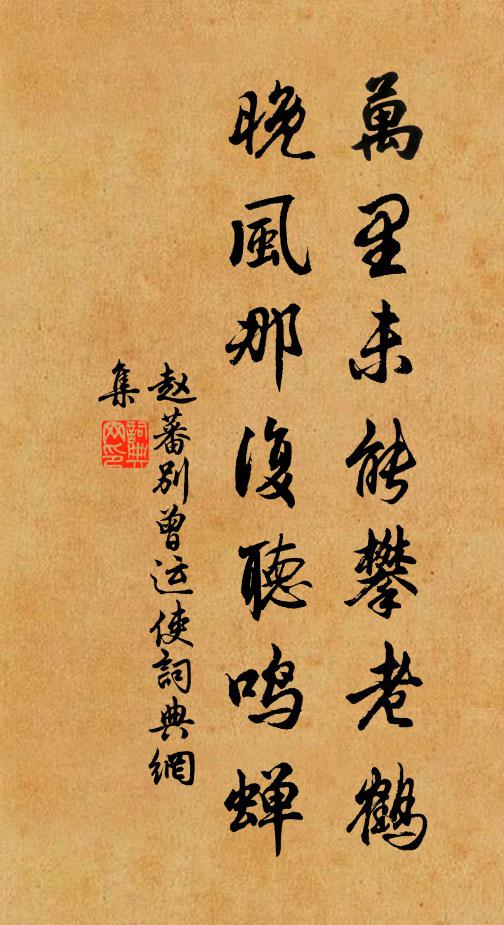 萬里未能攀老鶴
晚風那復聽鳴蝉
赵蕃别曾运使詞典網
集
詞典網印